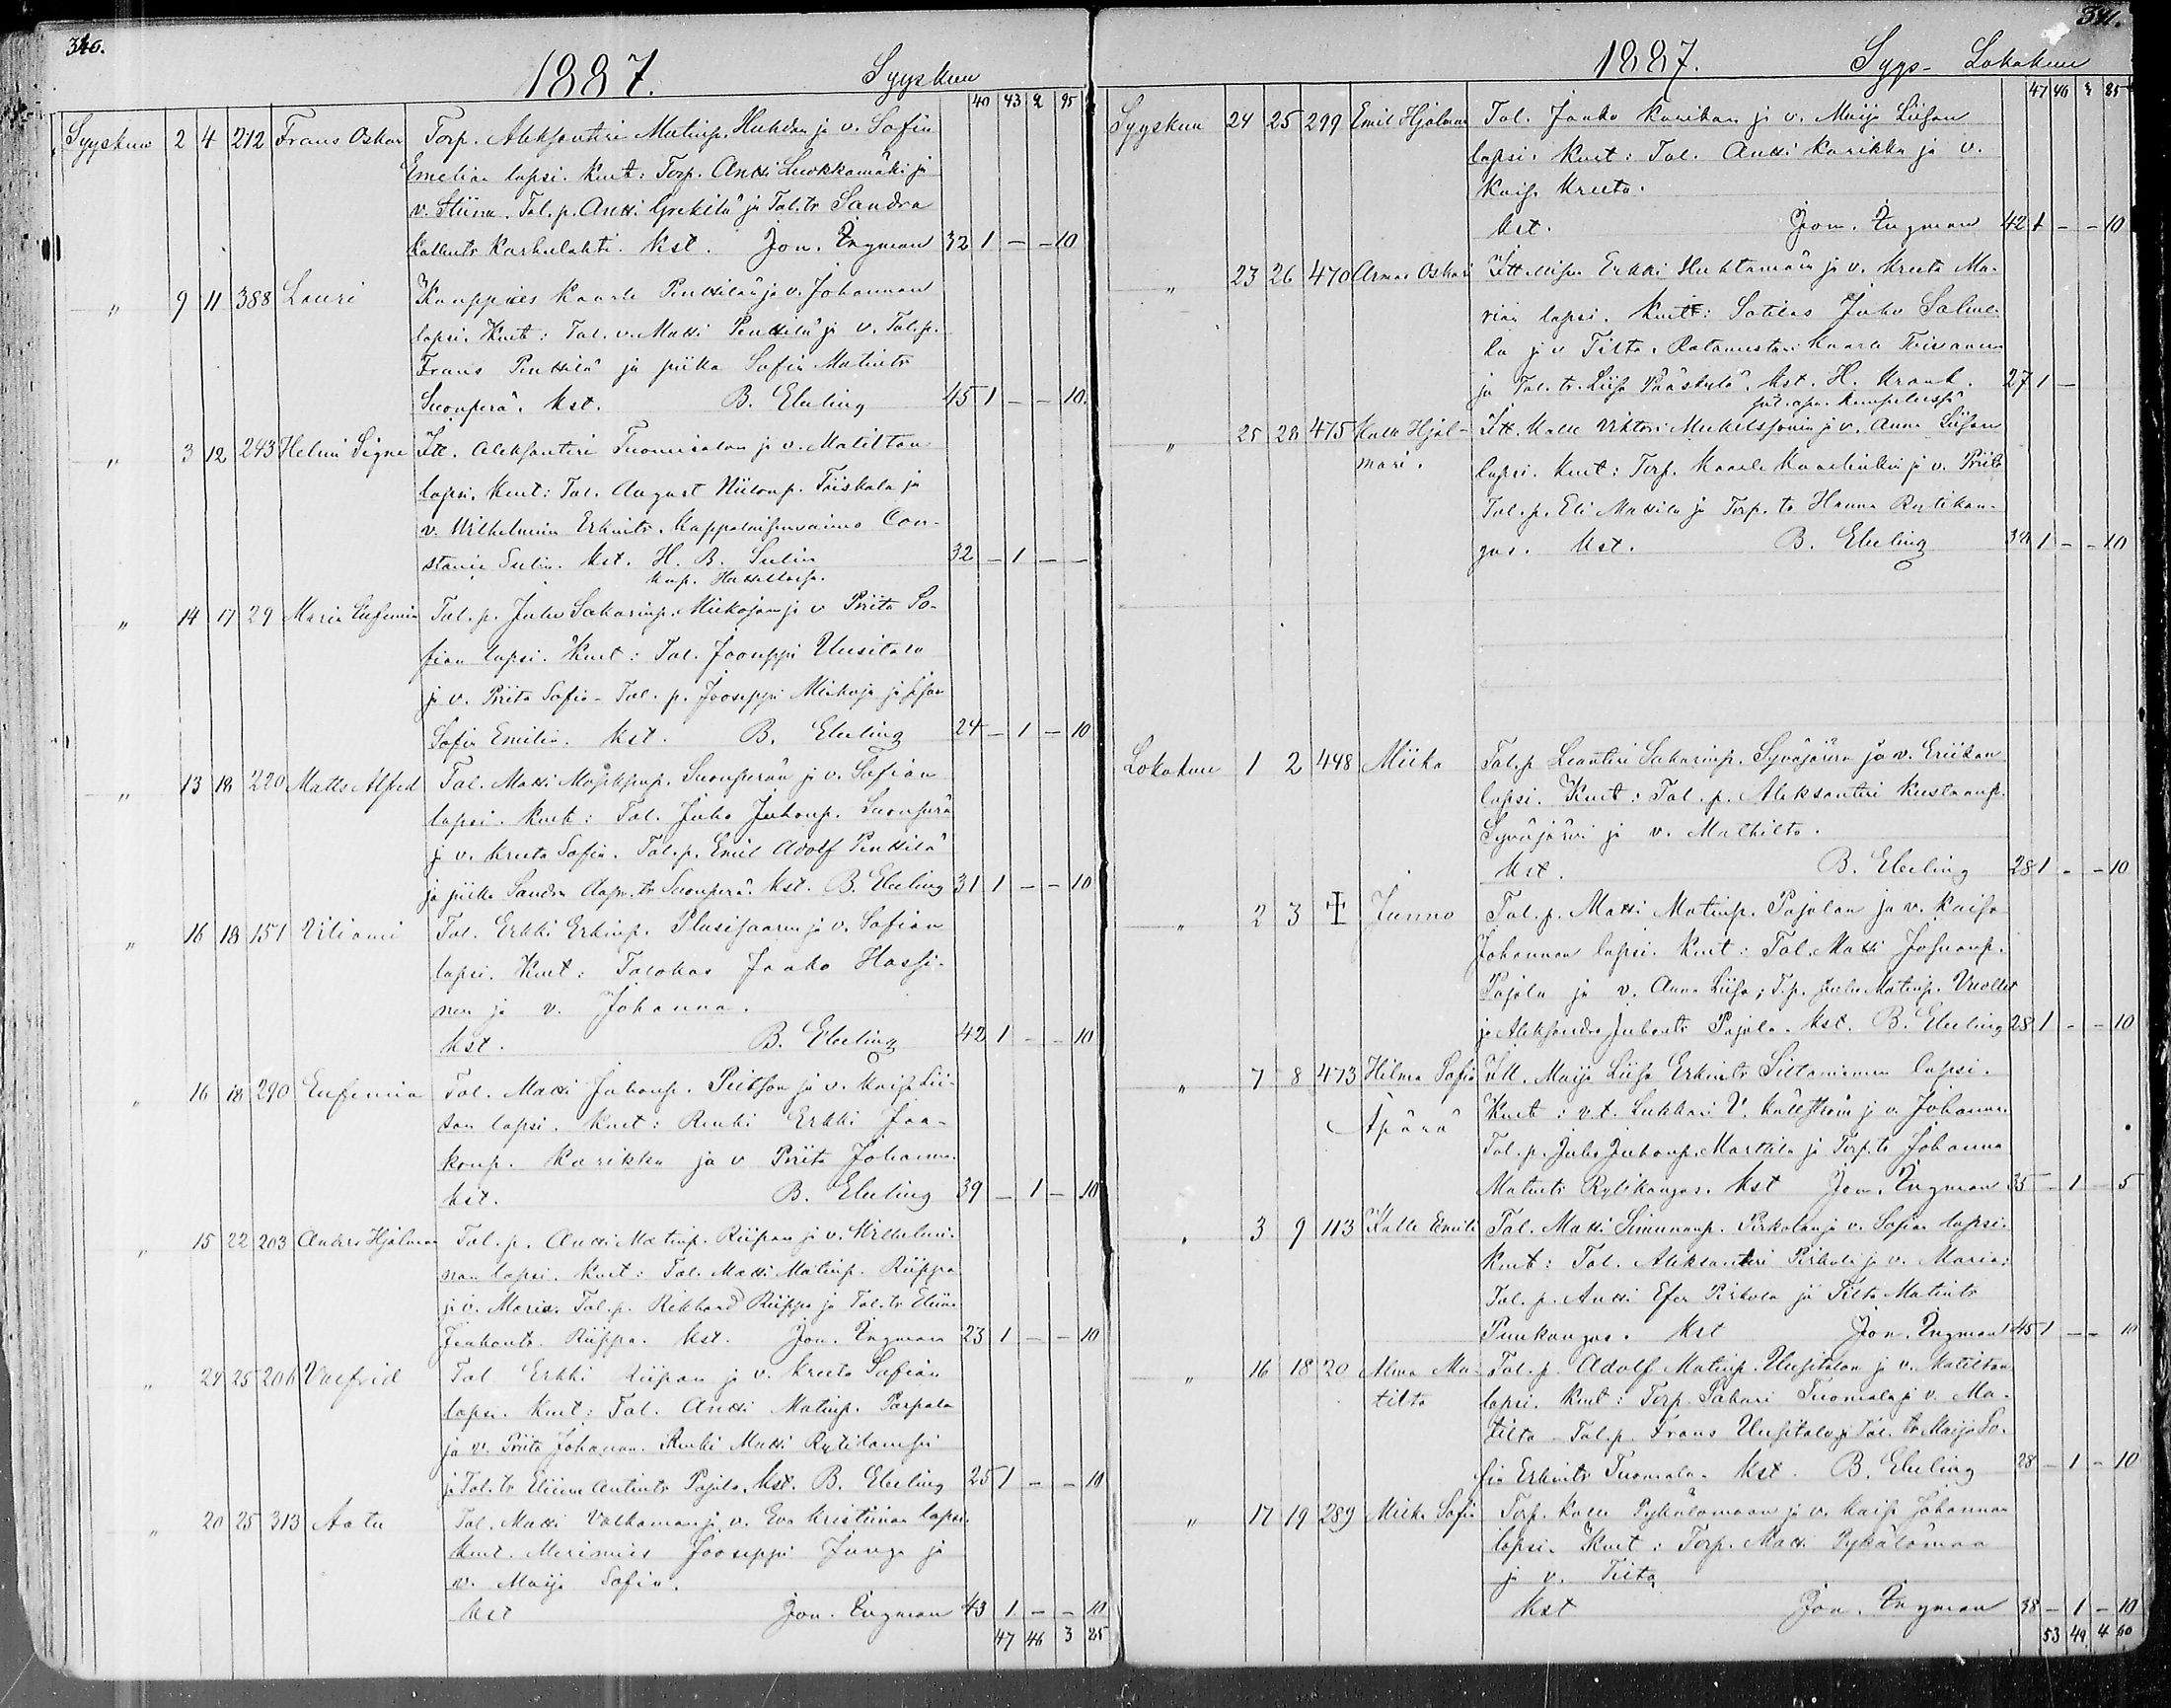 340.
1887. Syyskuu
40 43 2 95
Syyskuu 2 4 212 Frans Oskar Torp. Aleksanteri Matinp. Huhdan ja v. Sofia
Emelian lapsi. Kmt: Torp. Antti Luokkamäki ja
v. Stiina. Tal. p. Antti ja Tal. tr Sandra
Kallentr Karhulahti. Kst. Jon. Ingman 32 1 – – 10
" 9 11 388 Lauri Kauppias Kaarle Penttilän ja v. Johannan
lapsi. Kmt: Tal. v. Matti Penttilä ja v. Tal. p.
Frans Penttilä ja piika Sofia Matintr
Suonperä. Kst. B. Eleling 45 1 – – 10.
" 3 12 243 Helmi Signe Itt. Aleksanteri Tuomisalon ja v. Matiltan
lapsi. Kmt: Tal. August Niilonp. Töiskala ja
v. Wilhelmiina Erkintr. Kappalaisen vaimo Con-
stanse Sulin. Kst. H. B. Sulin 32 – 1 – –
kap.
" 14 17 29 Maria Eufemia Tal. p. Juho Sakarinp. Miekojan ja v Priita So-
fian lapsi. Kmt: Tal. Jooseppi Uusitalo
ja v. Priita Sofia – Tal. p. Jooseppi Miekoja ja
Sofia Emilia. Kst. B. Eleling 24 – 1 – 10
" 13 18 220 Matts Alfred Tal. Matti Suonperän ja v. Sofian
lapsi. Kmt: Tal. Juho Juhonp. Suonperä
ja v. Kreeta Sofia. Tal. p. Emil Adolf Penttilä
ja piika Sandra tr Suonperä. Kst. B. Eleling 31 1 – – 10
" 16 18 151 Viliami Tal. Erkki Erkinp. Plusisaaren ja v. Sofian
lapsi. Kmt: Talokas Jaako Hassi-
nen ja v. Johanna.
Kst. B. Eleling 42 1 – – 10
" 16 18 290 Eufemia Tal. Matti Juhonp. ja v. Kaisa Lii-
san lapsi. Kmt: Renki Erkki Jaa-
konp. Karikka ja v Priita Johanna.
Kst. B. Eleling 39 – 1 – 10
" 15 22 203 Anders Hjalmar Tal. p. Antti Matinp. Riipan ja v. Wilhelmii-
nan lapsi. Kmt: Tal. Matti Matinp. Riippa
ja v. Maria. Tal. p. Rikhard Riippa ja Tal. tr Eliina
Juhontr. Riippa. Kst. Jon. Ingman 23 1 – – 10
" 24 25 206 Valfrid Tal Erkki Riipan ja v. Kreeta Sofian
lapsi. Kmt: Tal. Antti Matinp. Parpala
ja v. Priita Johanna. Renki Matti
ja Tal. tr Eliina Antintr Pajala. Kst. B. Eleling 25 1 – – 10
" 20 25 313 Aatu Tal. Matti ja v. Eva Kristiinan lapsi.
Kmt. Merimies Jooseppi Junge ja
v. Maija Sofia.
Kst Jon. Ingman 43 1 – – 10
47 46 3 25
341.
1887. Syys- Lokakuu
47 46 3 85
Syyskuu 24 25 299 Emil Hjalmar Tal. Jaako Karikan ja v. Maija Liisan
lapsi. Kmt: Tal. Antti Karikka ja v.
Kaisa Kreeta.
Kst. Jon. Ingman 42 1 – – 10
" 23 26 470 Armas Oskari Erkki Huhtamäen ja v. Kreeta Ma-
rian lapsi. Kmt: Sotilas Juho Salme-
la ja v Tilta. Ratamestari Kaarle
ja Tal. tr. Liisa Pääskylä. Kst. H. Krank. 27 1 –
" 25 28 475 Kalle Hjal- Itt. Kalle Viktori ja v. Anna Liisan
mari. lapsi. Kmt: Torp. Kaarle ja v. Priita
Tal. p. Eli Mattila ja Torp. tr Hanna Rytikan-
gas. Kst. B. Eleling 34 1 – – 10
Lokakuu 1 2 448 Miika Tal. p Leanteri Sakarinp. Syväjärven ja v. Eriikan
lapsi. Kmt: Tal. p. Aleksanteri Kustaanp.
Syväjärvi ja v. Mathilta.
Kst. B. Eleling 28 1 – – 10
" 2 3 Junno Tal. p. Matti Matinp. Pajalan ja v. Kaisa
Johannan lapsi. Kmt: Tal. Matti
Pajala ja v. Anna Liisa; T. p. Juho Matinp. Vuolle
ja Aleksandra Juhontr Pajala. Kst. B. Eleling 28 1 – – 10
" 7 8 473 Hilma Sofia Itt. Maija Liisa Erkintr Siltaniemen lapsi.
Äpärä Kmt: v.t. Lukkari V. Källström ja v. Johanna
Tal. p. Juho Juhonp. Marttila ja Torp. tr Johanna
Matintr Rytikangas. Kst Jon. Ingman 35 – 1 – 5
" 3 9 113 Kalle Emil Tal. Matti Simunanp. Pirkolan ja v. Sofian lapsi.
Kmt: Tal. Aleksanteri Pirkola ja v. Maria:
Tal. p. Antti Efer Pirkola ja Tilta Matintr
Puukangas. Kst Jon. Ingman 45 1 – – 10
" 16 18 20 Alma Ma- Tal. p. Adolf Matinp. Uusitalon ja v. Matiltan
tilta lapsi. Kmt: Torp. Sakari Tuomala ja v. Ma-
tilta – Tal. p. Frans Uusitalo ja Tal. tr Maija So-
fia Erkintr Tuomala. Kst. B. Eleling 28 – 1 – 10
" 17 19 289 Miika Sofia Torp. Kalle Pykälämaan ja v. Kaisa Johannan
lapsi. Kmt: Torp. Matti Pykälämaa
ja v. Tilta
Kst Jon. Ingman 38 – 1 – 10
53 49 4 60